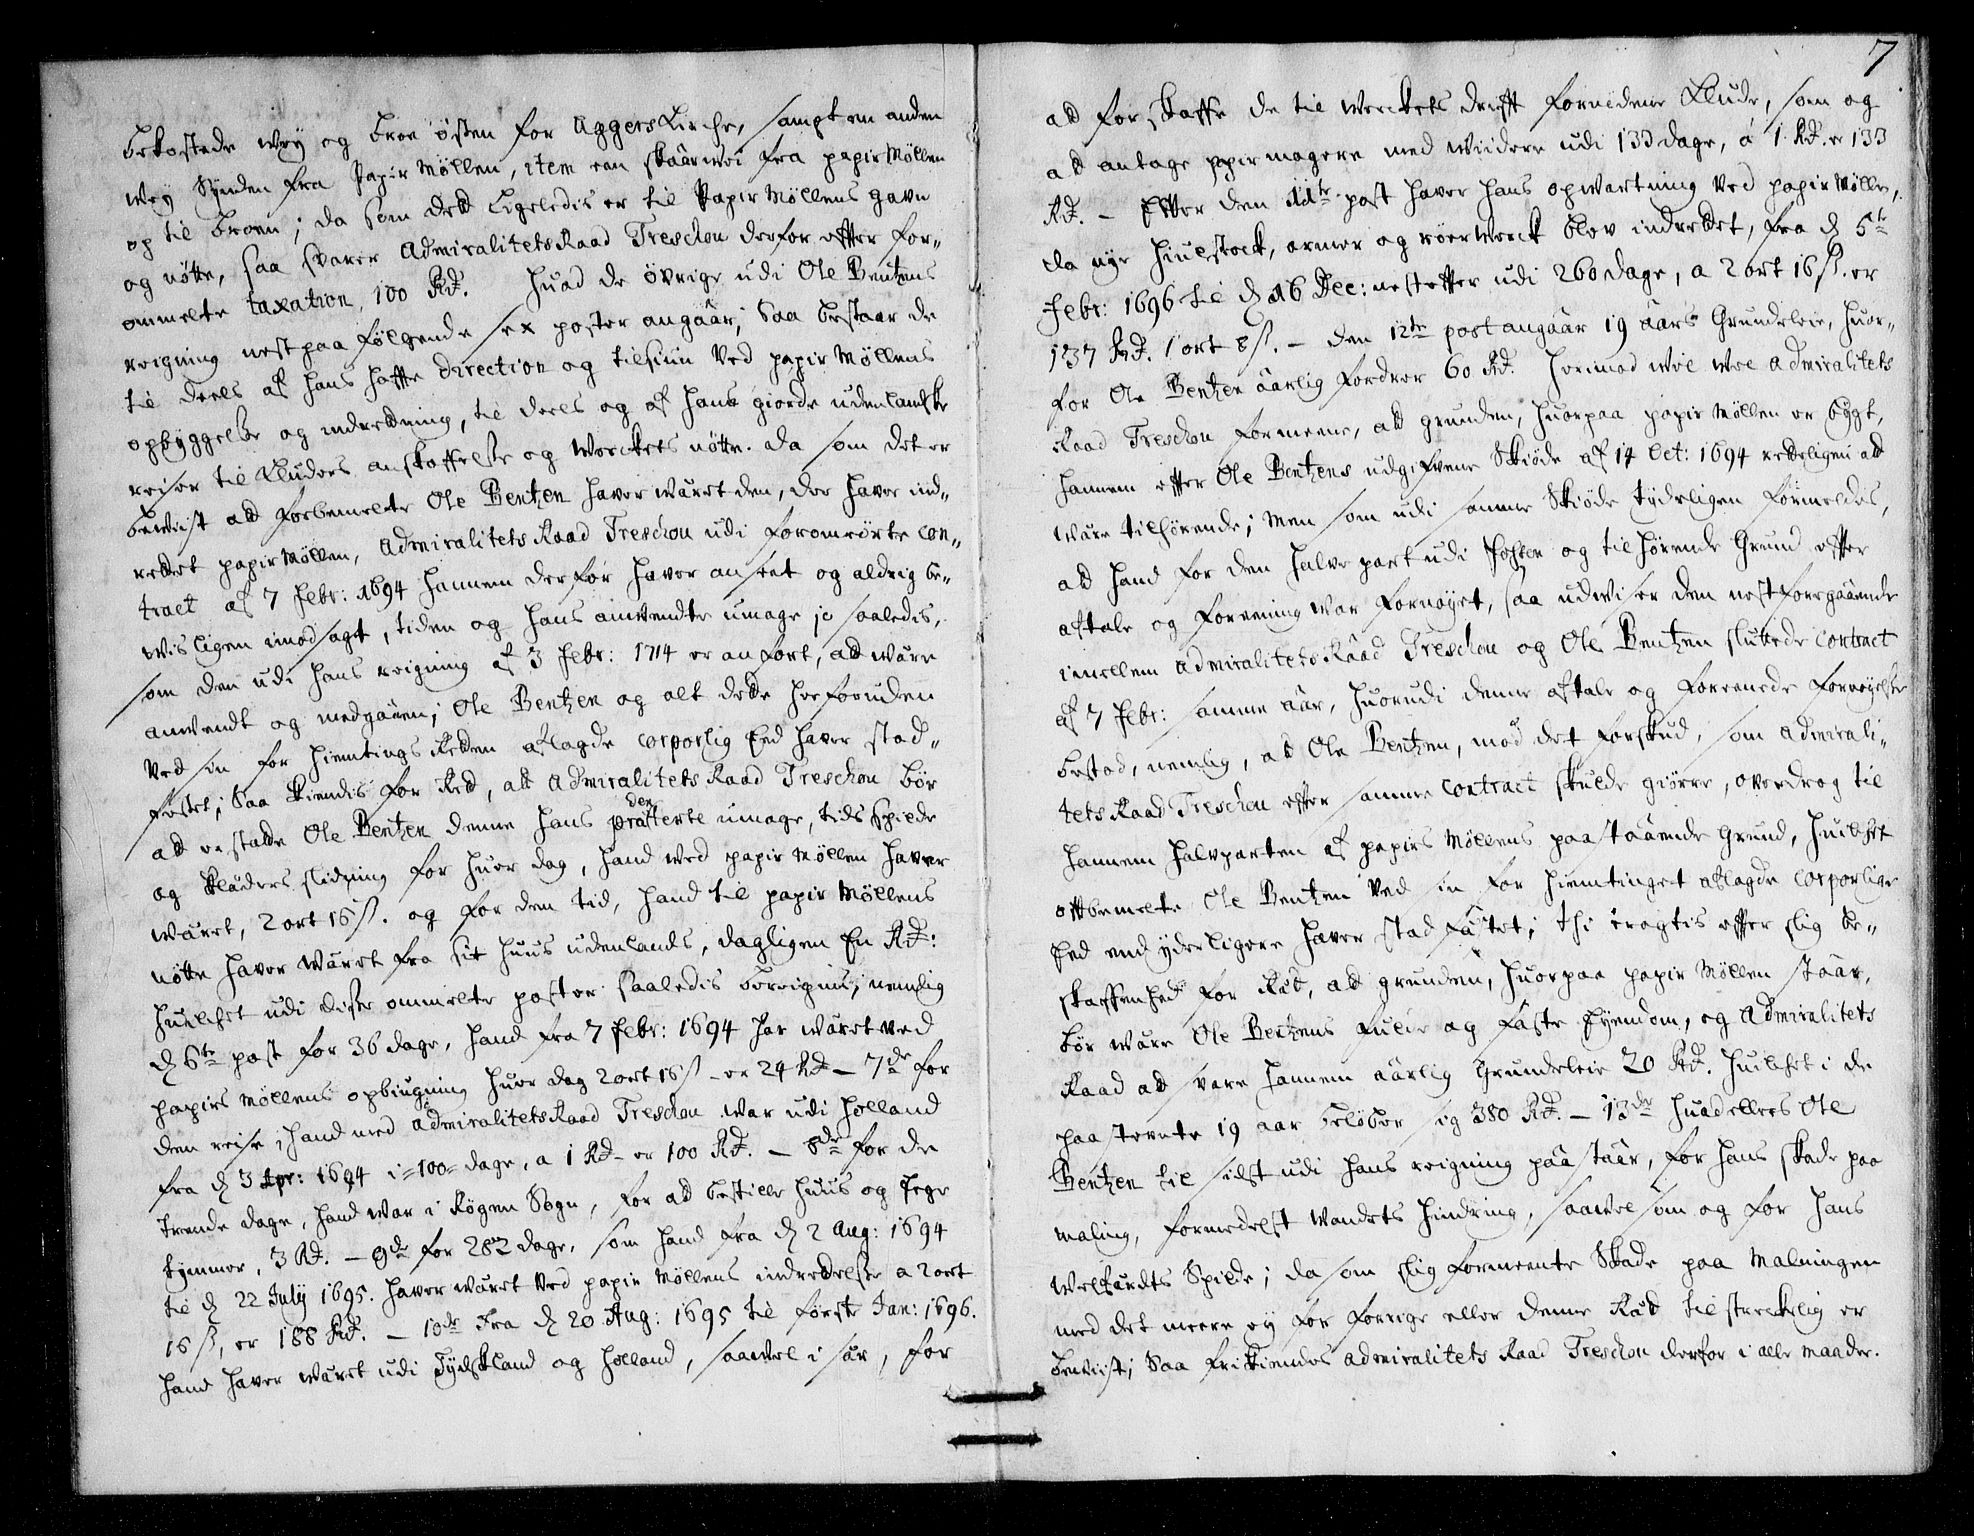 bekostede wey og broe østen for Aggers Kirche, sampt en anden
wey Synden fra Papir Møllen, item een skaarwei fra papir Møllen
op til broen; da som det Ligeledis er til Papir Møllens gavn
og nötte, saa svarer Admiralitets Raad Treschou derfor effter for„
ommelte taxation, 100 Rd. Huad de övrige udi Ole Bentzens
reigning nest paa følgende sex poster angaar; Saa bestaar de
til deels af hans haffte direction og tilsiun ved papir Møllens
opbyggelse og indretning, til deels og af hans giorde udenlandske
reiser til Kludes anskaffelse og Werckets nötte. da som det er
bewiist at forbemelte Ole Bentzen haver wäret den, der haver ind„
rettet papir Møllen, Admiralitets Raad Treschou udi foromrörte con„
tract af 7 Febr: 1694 hannem derfor haver anseet og aldrig be„
wisligen imodsagt, tiden og hans anwendte umage jo saaledis,
som den udi hans reigning af 3 Febr: 1714 er anfört, at wäre
anwendt og medgaaen; Ole Bentzen og alt dette herforuden
ved sin for Hiemtings Retten aflagde corporlig Eed haver stad„
fästet; Saa kiendis for Ret, at Admiralitets Raad Treschou bör
at erstatte Ole Bentzen denne hans prætenderte umage, tids Spilde
og Kläders slidning for huer dag, hand ved papir Møllen haver
wäret, 2 ort 16 ß. og for den tid, hand til papir Møllens
nötte haver wäret fra sit Huus udenlands, dagligen En Rd:
huilchet udi disse ommelte poster saaledis beregnis; nemlig
d 6te post for 36 dage, hand fra 7 Febr: 1694 har wäret ved
papirs Møllens opbiugning huer dag 2 ort 16 ß – er 24 Rd – 7de for
den reise, hand med Admiralitets Raad Treschou war udi Holland
fra d 3 Apr: 1694 i =100= dage, a 1 Rd – er 100 Rd. – 8de for de
trende dage, hand war i Røgen Sogn, for at bestille huus og Sege
tymmer, 3 Rd. – 9de for 282 dage, som hand fra d 2 Aug: 1694
til d 22 July 1695. haver wäret ved papir Møllens indrettelse a 2 ort
16 ß, er 188 Rd. – 10de Fra d 20 Aug: 1695 til förste Jan: 1696.
hand haver wäret udi Tydskland og Holland, saavel i sär, for
7
at forskaffe de til werckets drifft fornödene Klude, som og
at antage papirmagere med widere udi 133 dage, á 1 Rd. er 133
Rd. – Effter den 11te post haver hans opwartning ved papir Møllen,
da nye Hiulstock, armer og rörwerck blev indrettet, fra d 5te
Febr: 1696 til d 16 Dec: nestefter udi 260 dage, a 2 ort 16 ß. er
137 Rd. 1 ort 8 ß. – den 12te post angaar 19 aars Grundeleie, huor„
for Ole Bentzen aarlig fordrer 60 Rd. Herimod wil wel Admiralitets
Raad Treschou formeene, at grunden, huorpaa papir Møllen er bygt,
hannem effter Ole Bentzens udgifvene Skiöde af 14 Oct: 1694 retteligen at
wäre tilhörende; men som udi samme Skiöde tydeligen formeldis,
at hand for den halve part udi Fossen og tilhörende Grund effter
aftale og foreening war fornöyet, saa udwiser den nest foregaaende
imellem Admiralitets Raad Treschou og Ole Bentzen sluttede contract
af 7 Febr: samme aar, huorudi denne aftale og foreenede fornöyelse
bestod, nemlig, at Ole Bentzen, mod det forskud, som Admirali„
tets Raad Treschou effter samme contract skulde giöre, overdrog til
hannem halvparten af papirs Møllens paastaaende Grund, huilket
offtbemelte Ole Bentzen ved sin for hiemtinget aflagde corporlige
Eed end yderligere haver stadfästet; Thi eragtis effter slig be„
skaffenhed for Ret, at grunden, huorpaa papir Møllen staar,
bör wäre Ole Bentzens fulde og faste Eyendom, og Admiralitets
Raad at svare hannem aarlig Grundeleie 20 Rd. huilket i de
paasterete 19 aar belöber sig 380 Rd. – 13de Huad ellers Ole
Bentzen til sidst udi hans reigning paastaar, for hans skade paa
maling, formedelst Wandets hindring, saavel som og for hans
Welfærdts Spilde; da som slig formeente Skade paa Malningen
med det meere ey for forrige eller denne Ret tilstreckelig er
bewiist; Saa frikiendes Admiralitets Raad Treschou derfor i alle maader.